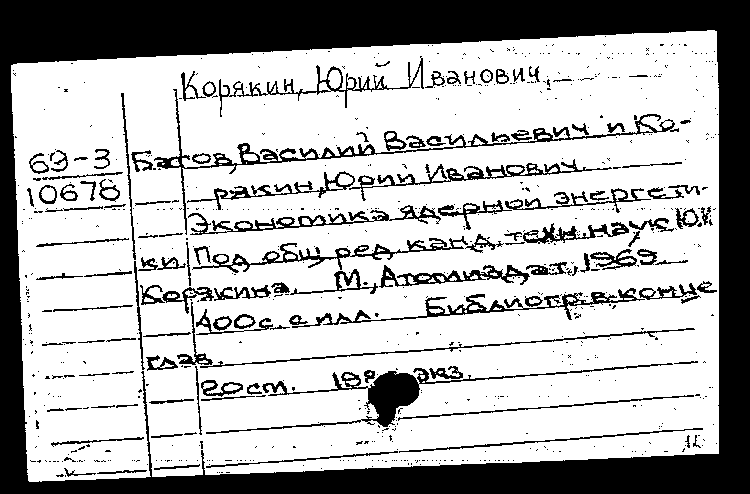 Корякин, Юрий Иванович,
69-3
10678
Батов, Василий Васильевич и Ко-
рякин, Юрий Иванович.
Экономика ядерной энергети-
ки. Под общ. ред. канд. техн. наук Ю.И.
Корякина. М., Атомиздат, 1969.
400с. с илл. Библиогр. в конце
глав.
20 ст. экз.